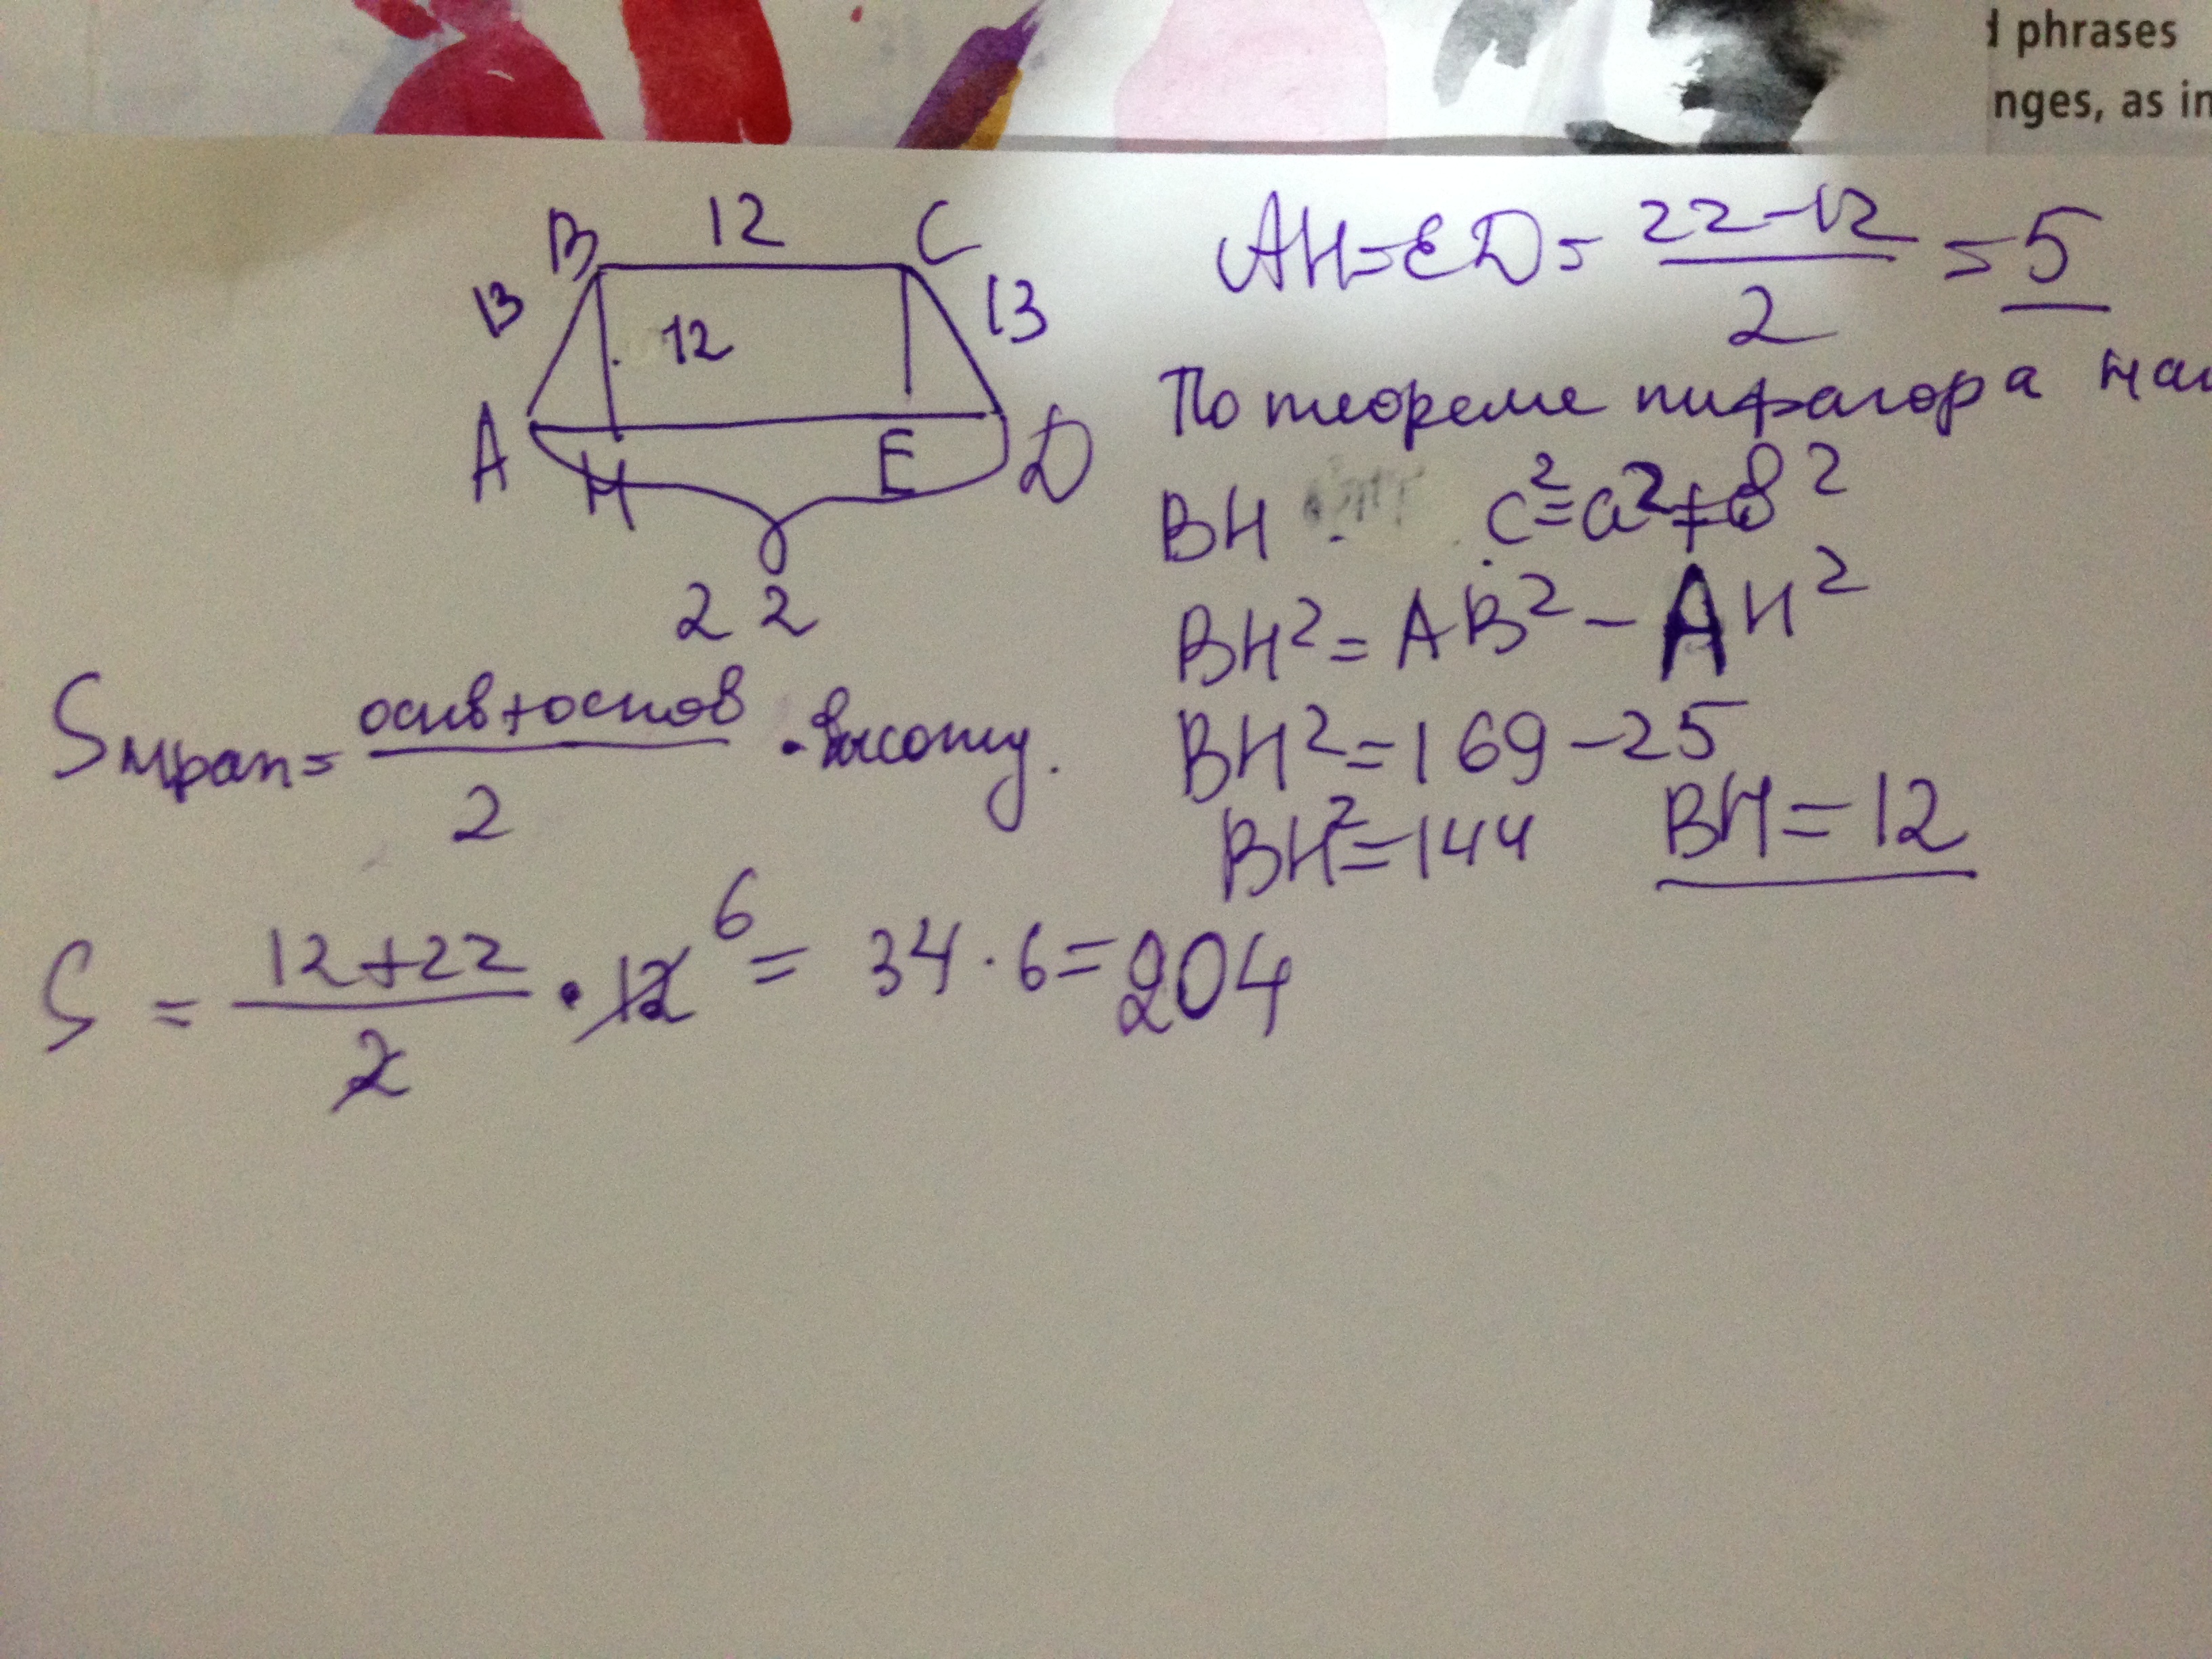 d phrases
nges, as in
B 12 C
13 12 13
A H E D
22
AH=ED= 22-12 / 2 = 5
По теореме пифагора
BH c²=a²+b²
BH²=AB²-AH²
BH²=169-25
BH²=144 BH=12
Sтрап= оснв+основ / 2 · высоту.
S = 12+22 / 2 · 12 6 = 34·6=204